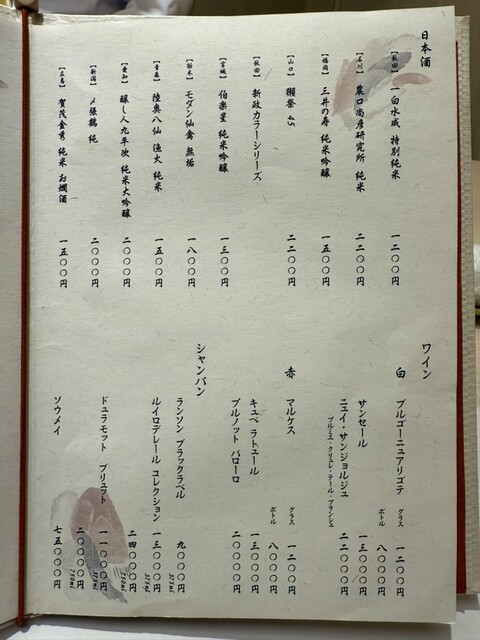 日本酒
【秋田】 一白水成 特別純米 一二〇〇円
【石川】 農口尚彦研究所 純米 二二〇〇円
【福岡】 三井の寿 純米吟醸 一五〇〇円
【山口】 獺祭 45 二二〇〇円
【秋田】 新政カラーシリーズ
【宮城】 伯楽星 純米吟醸 一三〇〇円
【栃木】 モダン仙禽 無垢 一八〇〇円
【青森】 陸奥八仙 漁火 純米 一五〇〇円
【愛知】 醸し人九平次 純米大吟醸 二〇〇〇円
【新潟】 〆張鶴 純 二〇〇〇円
【広島】 賀茂金秀 純米 お燗酒 一五〇〇円
ワイン
白 ブルゴーニュアリゴテ グラス 一二〇〇円
ボトル 八〇〇〇円
サンセール 一三〇〇〇円
ニュイ・サンジョルジュ 二二〇〇〇円
プルミエ・クリュレ・テール・ブランシュ
赤 マルケス グラス 一二〇〇円
ボトル 八〇〇〇円
キュベ ラトュール 一三〇〇〇円
ブルノット バローロ 二〇〇〇〇円
シャンパン
ランソン ブラックラベル 九〇〇〇円
375ml
ルイロデレール コレクション 一三〇〇〇円
375ml
二四〇〇〇円
750ml
ドュラモット ブリュット 一一〇〇〇円
375ml
二〇〇〇〇円
750ml
ソウメイ 七五〇〇〇円